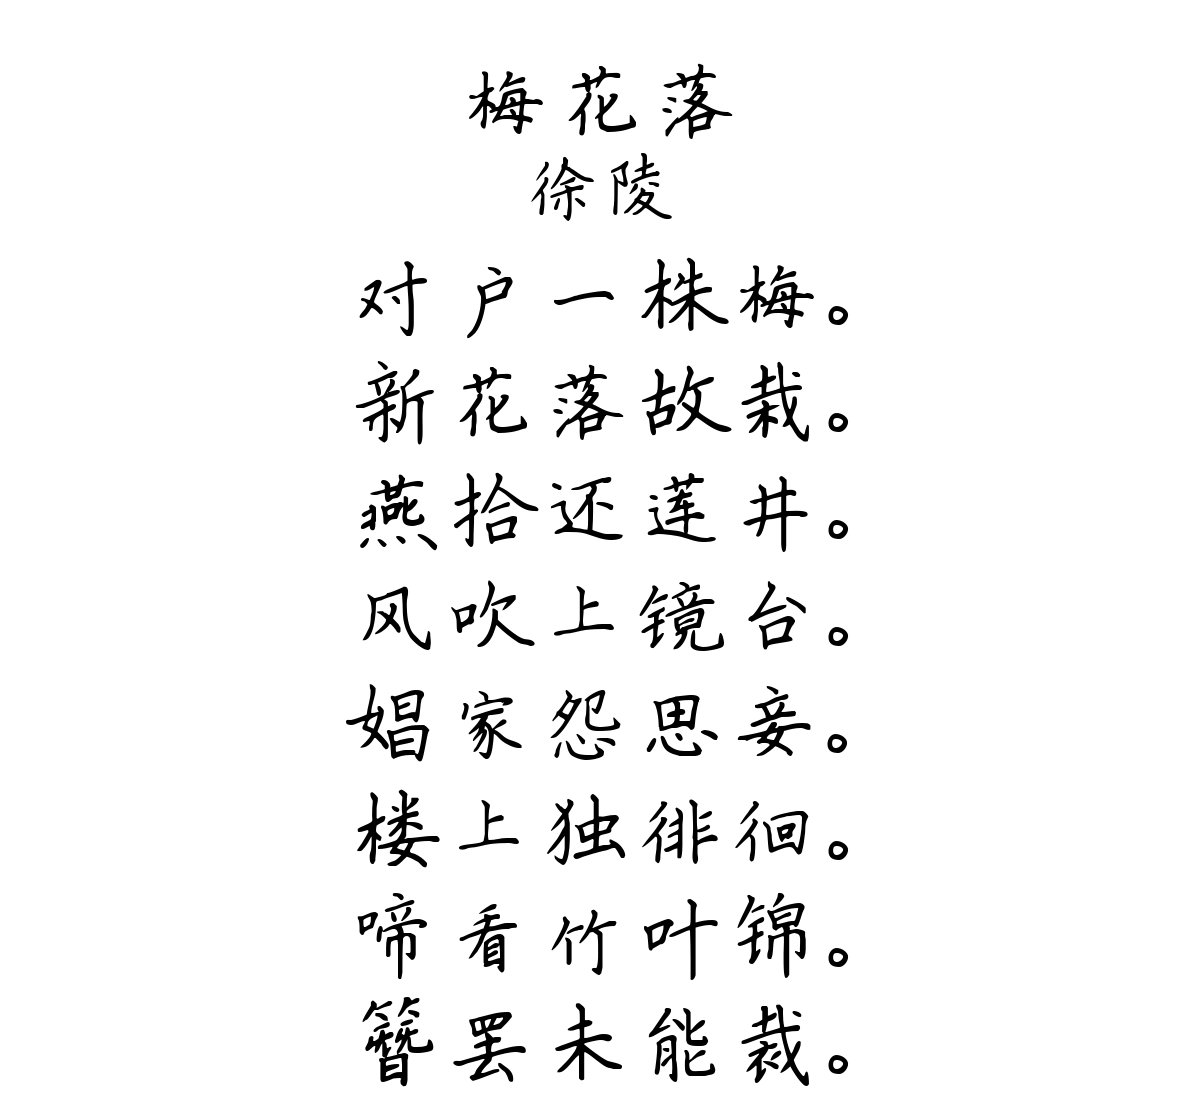 梅花落
徐陵
对户一株梅。
新花落故栽。
燕拾还莲井。
风吹上镜台。
娼家怨思妾。
楼上独徘徊。
啼看竹叶锦。
簪罢未能裁。